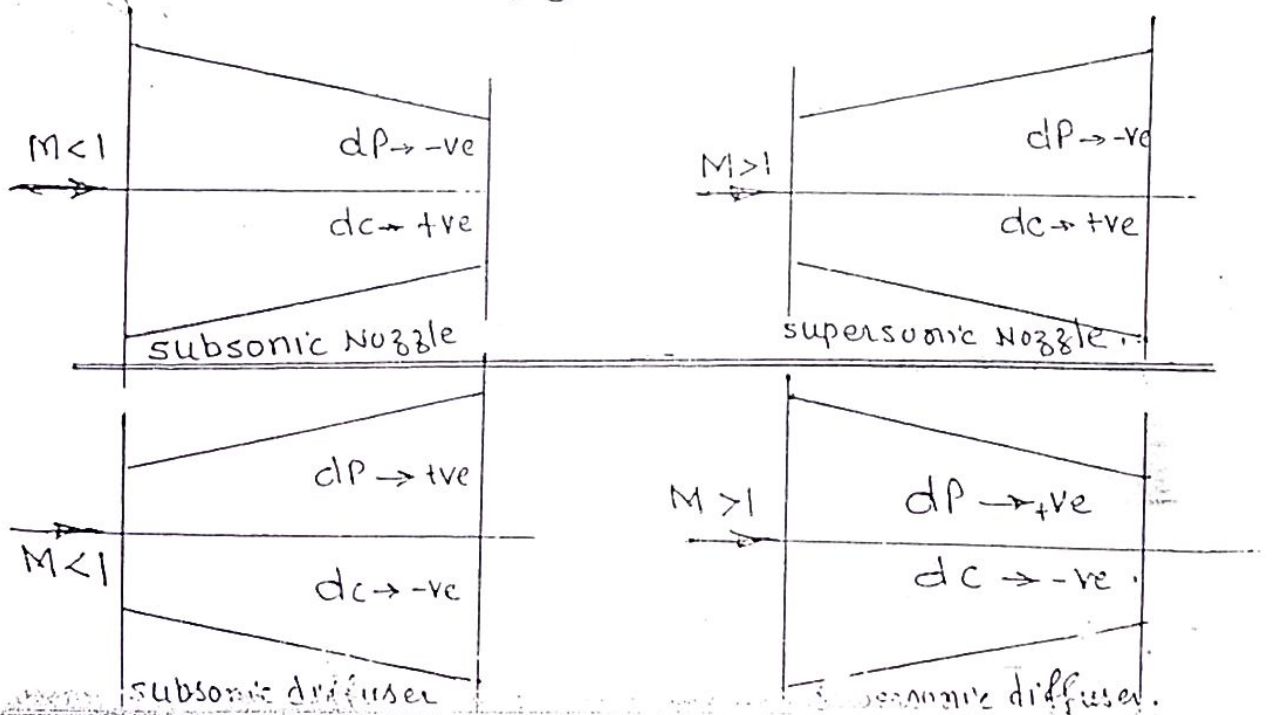 M<1
dP→ -ve
dc→ +ve
subsonic Nozzle
M>1
dP→ -ve
dc→ +ve
supersonic Nozzle.
M<1
dP → +ve
dc→ -ve
subsonic diffuser
M >1
dP → +ve
dc → -ve.
diffuser.